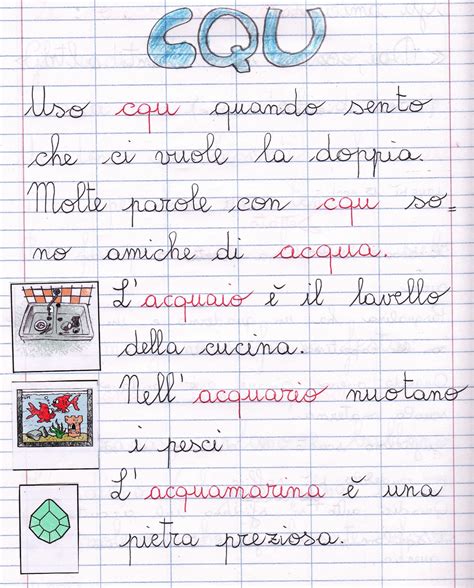 CQU
Uso cqu quando sento
che ci vuole la doppia.
Molte parole con cqu so=
no amiche di acqua.
L'acquaio è il lavello
della cucina.
Nell'acquario nuotano
i pesci
L'acquamarina è una
pietra preziosa.